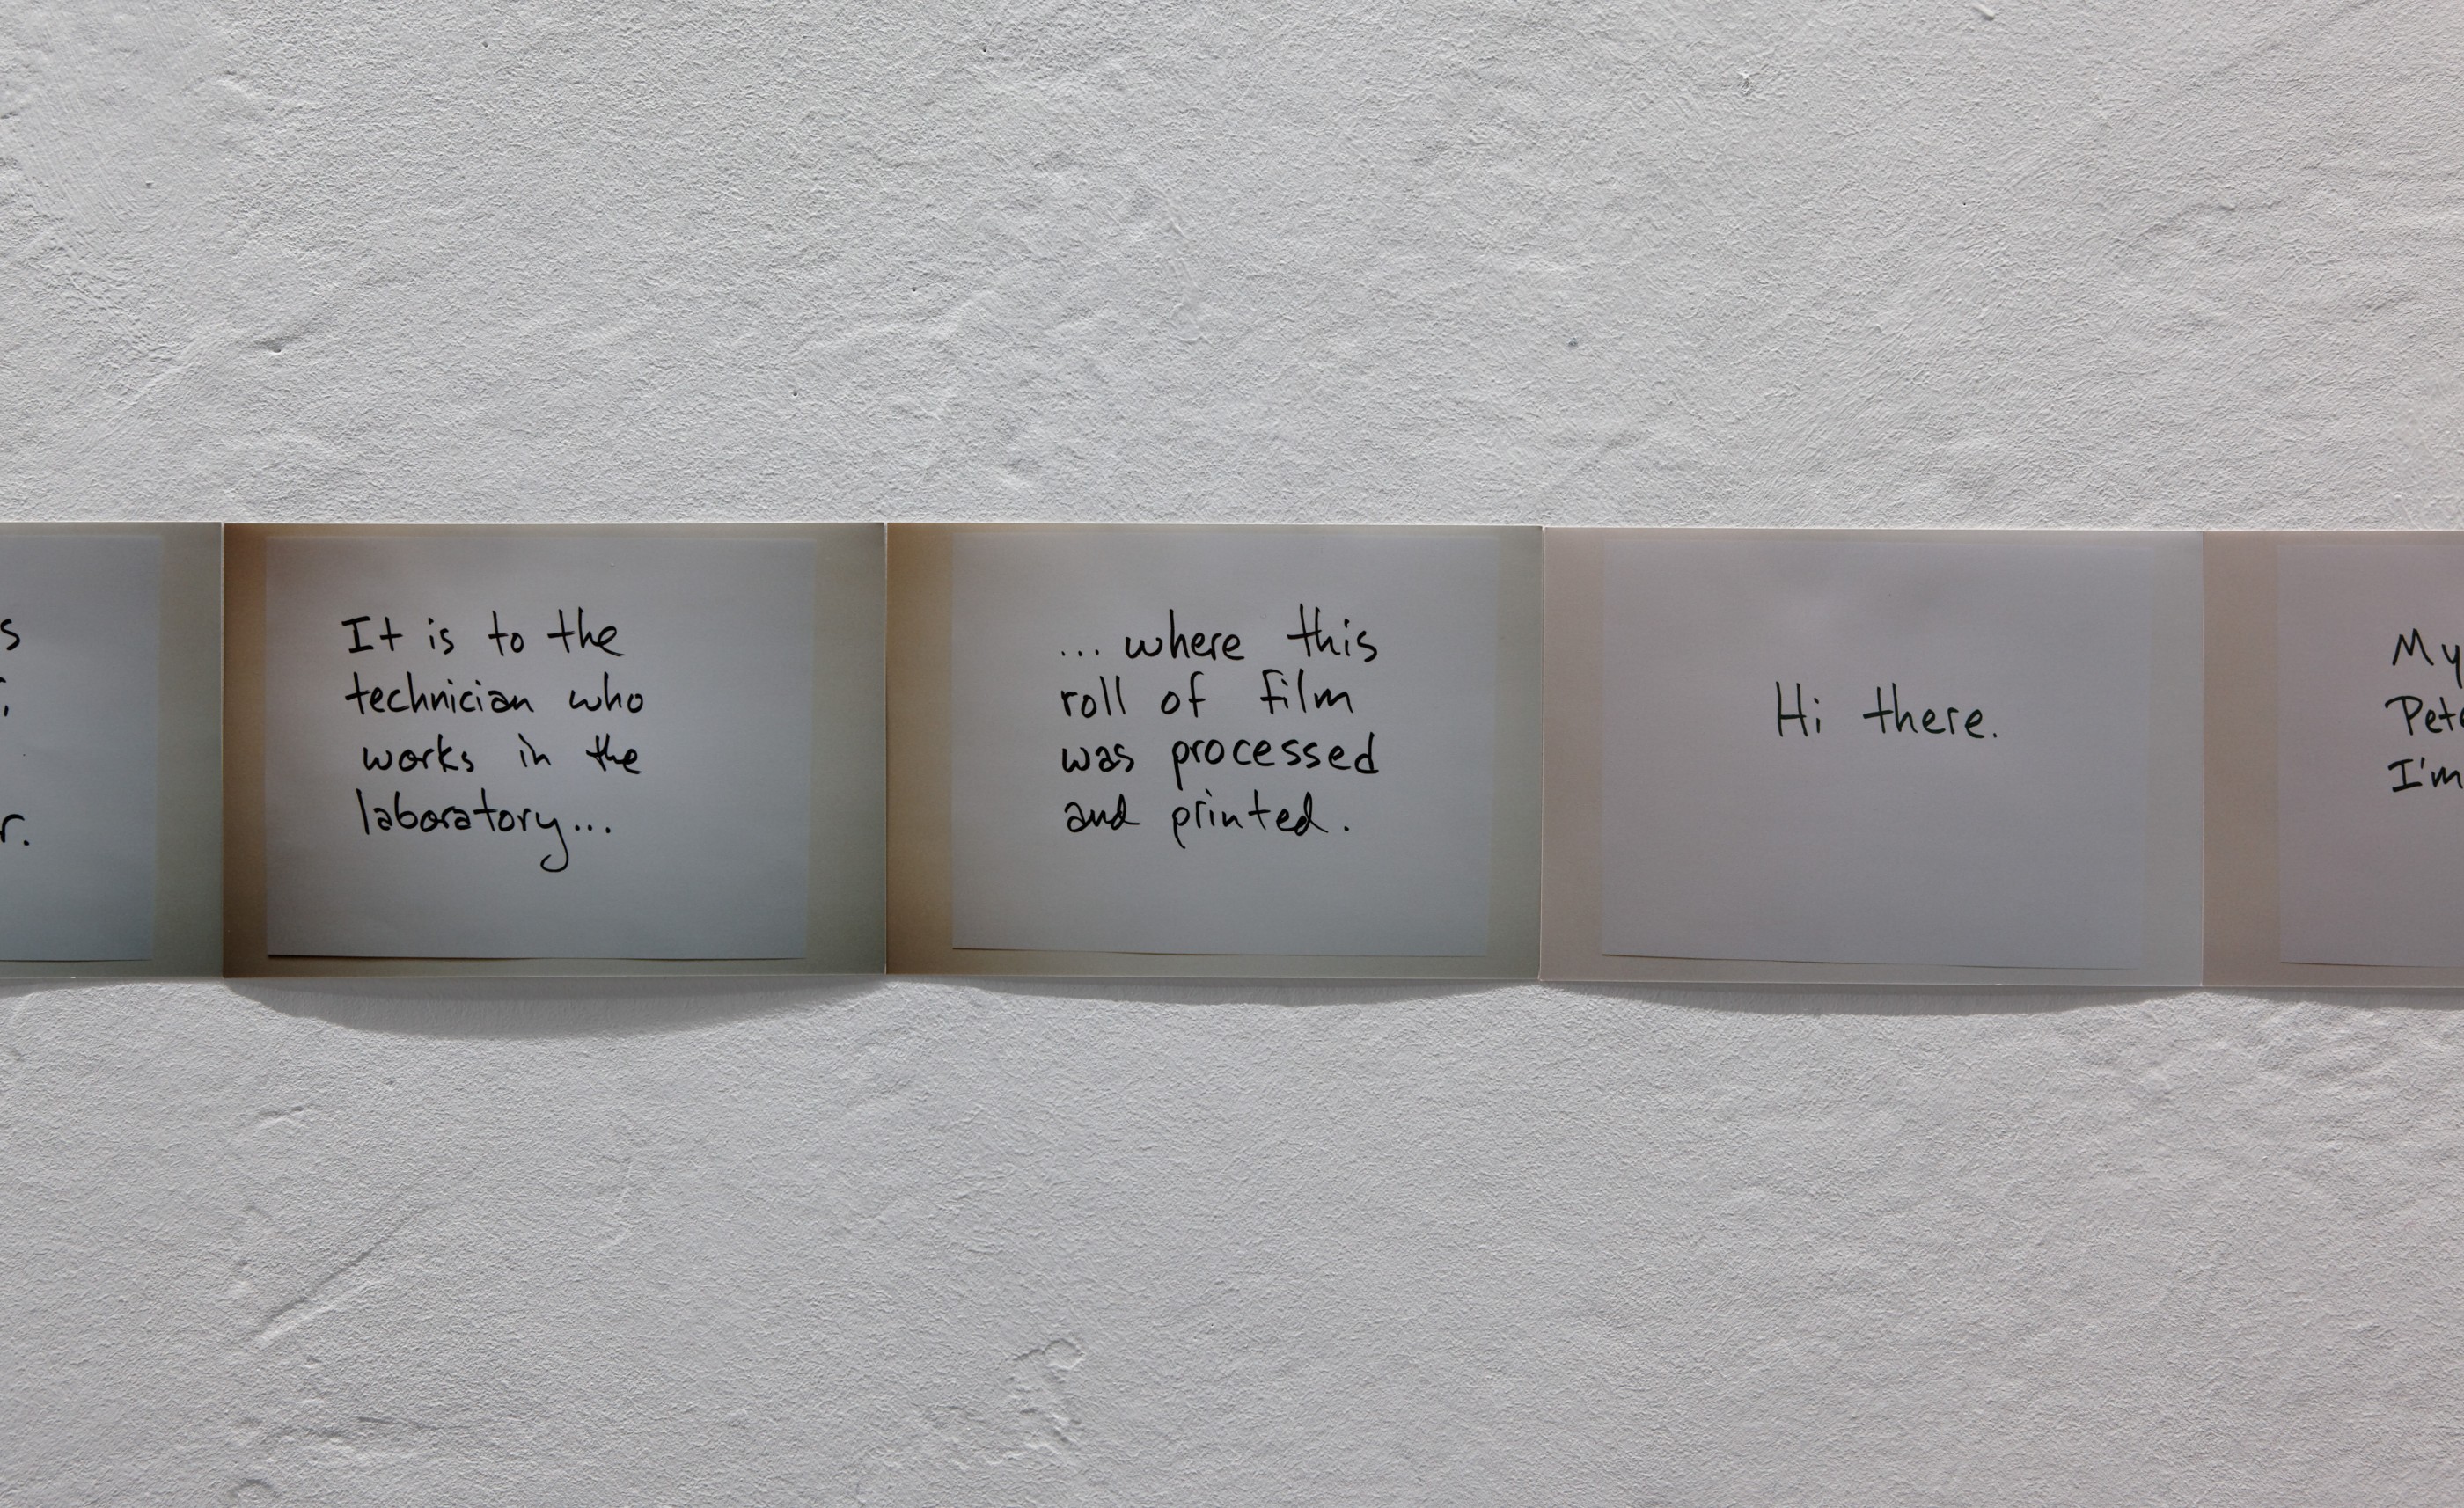 It is to the
technician who
works in the
laboratory...
... where this
roll of film
was processed
and printed.
Hi there.
My
I'm